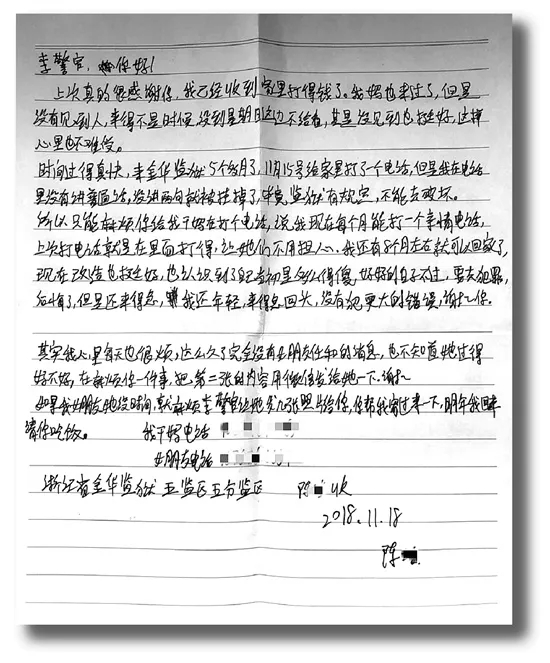 李警官，你好！
上次真的很感谢你，我已经收到家里打得钱了。我妈也来过了，但是
没有见到人，来得不是时候，没到星期日这边不给看，其实没见到也挺好，这样
心里也不难受。
时间过得真快，来金华监狱5个月了，11月15号给家里打了一个电话，但是我在电话
里没有讲普通话，没讲两句就被挂掉了，毕竟监狱有规定，不能去破坏。
所以只能麻烦你给我干妈在打个电话，说我现在每个月能打一个亲情电话，
上次打电话就是在里面打得，让她们不用担心，我还有8个月左右就可以回家了，
现在改造也挺好，也认识到了自己当初是多么得傻，好好的日子不过，要去犯罪，
后悔了，但是还来得急，我还年轻，来得急回头，没有犯更大的错误，谢谢你。
其实我心里每天也很烦，这么久了完全没有女朋友任何的消息，也不知道她过得
好不好，在麻烦你一件事，把第二张的内容用微信发给她一下，谢谢
如果我女朋友她没时间，就麻烦李警官让她发几张照片给你，你帮我寄过来一下，明年我回来
请你吃饭。 我干妈电话
女朋友电话
浙江省金华监狱 五监区五分监区 陈 收
2018.11.18
陈